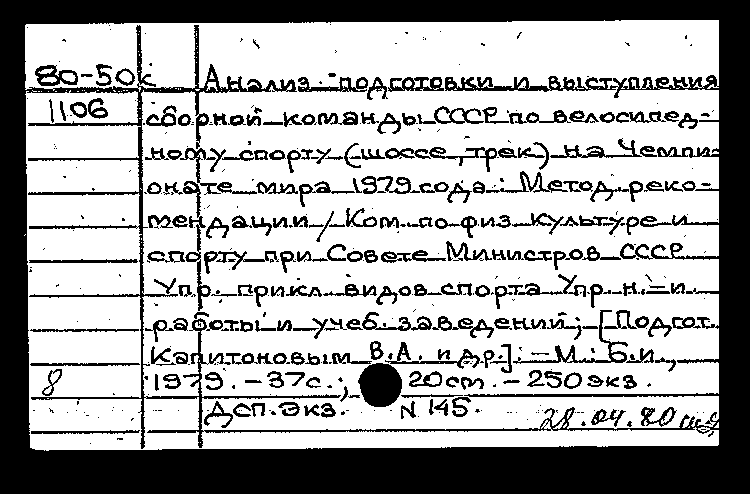 80-50к Анализ подготовки и выступления
1106 сборной команды СССР по велосипед-
ному спорту (шоссе, трек) на Чемпи-
онате мира 1979 года: Метод. реко-
мендации / Ком. по физ. культуре и
спорту при Совете Министров СССР.
Упр. прикл. видов спорта Упр. н.-и.
работы и учеб. заведений; [Подгот.
Капитоновым В.А. и др.]. - М.: Б.и.,
8 1979. - 37с.; 20cm. - 250 экз.
Дсп. Экз. N 145.
28.04.80